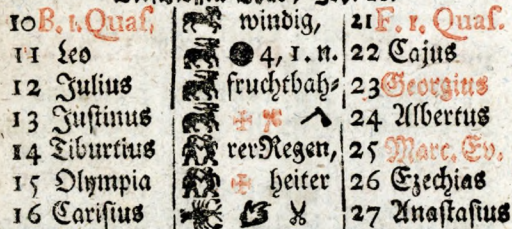 10 B. 1. Quas. windig, 21 F. 1. Quas.
11 Leo 4, 1. n. 22 Cajus
12 Julius fruchtbah⸗ 23 Georgius
13 Justinus 24 Albertus
14 Tiburtius rer Regen, 25 Marc. Ev.
15 Olympia heiter 26 Ezechias
16 Carisius 27 Anastasius